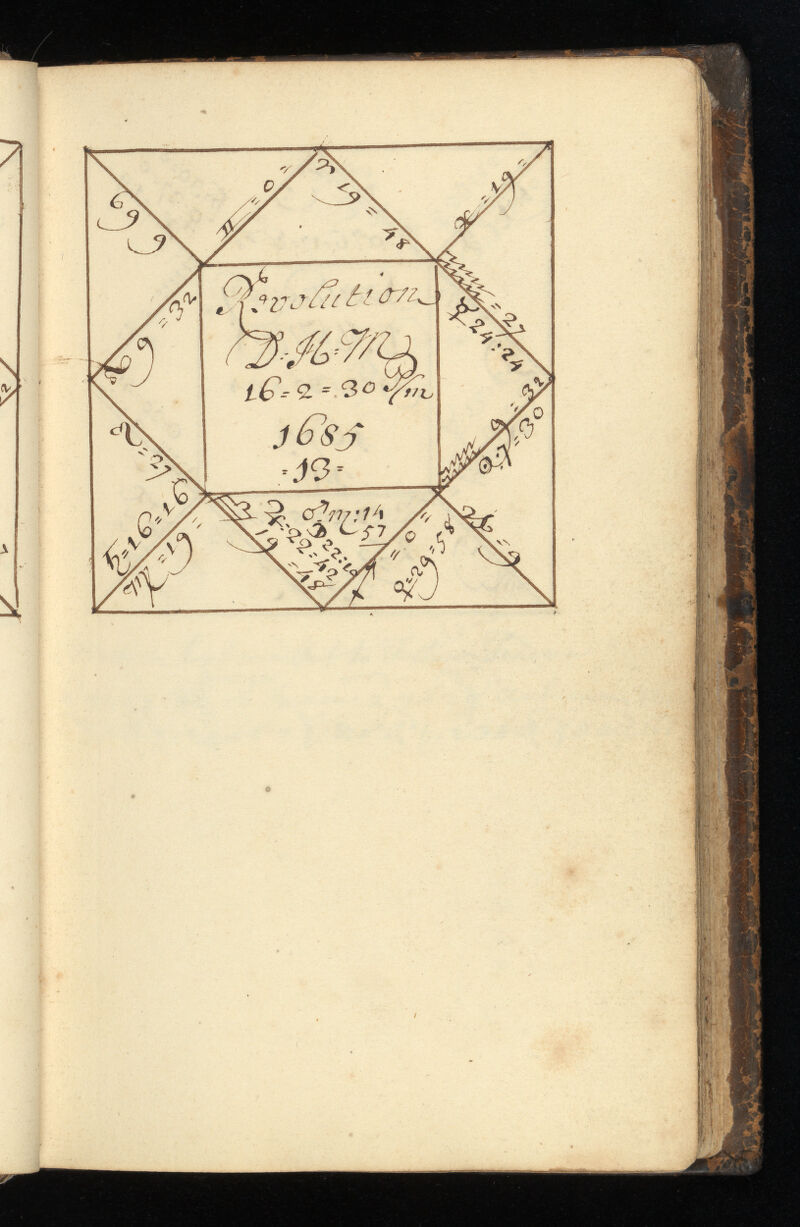 Revolution
D=H=M
16=2=30 P/m
1685
=13=
♊=0=
♈ 19=48
♓=19=
♒=27
☿ 24:24
♒ 9=32
☉.7=30
♑=9
♐=0=
♀=29=58
♂♏:14
57
☽22:10
♃=22=42
♎ 19=48
♍=19=
♄=16=16
♌=27
♌ 9=32
♋ 9